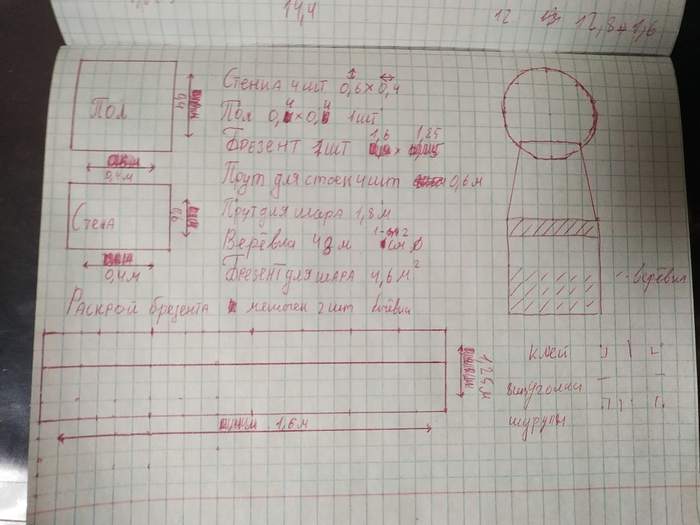 14,4
12
12,8
1,6
Пол
0,4
0,4м
Стенка 4шт 0,6 х 0,4
Пол 0,4 х 0,4 1шт
Брезент 1шт 1,6 х 1,25
Прут для стоек 4шт 0,6 м
Прут для шара 1,8 м
Верёвка 43 м 1-2 см
Брезент для шара 4,6 м²
Стена
0,6
0,4м
Раскрой брезента мешочек 2шт
1,25м
1,6м
верёвка
клей
уголки
шурупы